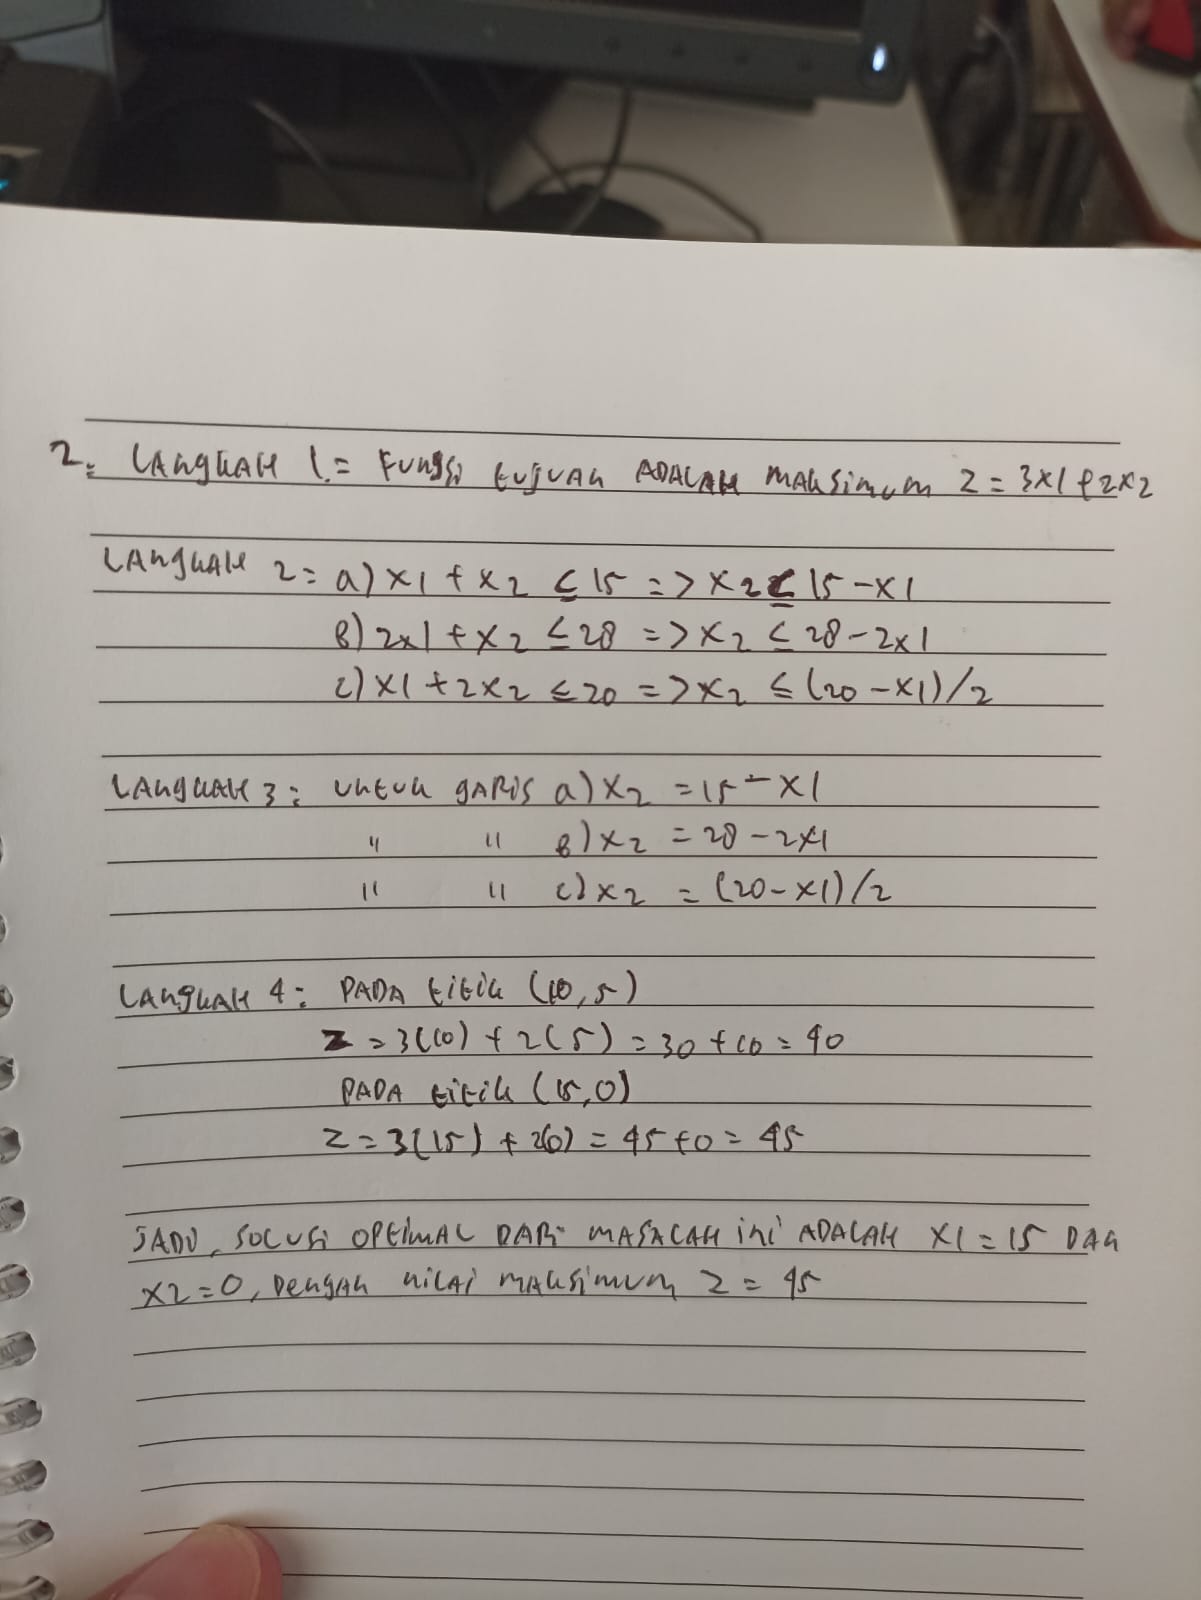 2. LANGKAH 1 = FUNGSI TUJUAN ADALAH MAKSIMUM Z = 3X1 + 2X2
LANGKAH 2 = a) X1 + X2 ≤ 15 => X2 ≤ 15 - X1
B) 2X1 + X2 ≤ 28 => X2 ≤ 28 - 2X1
c) X1 + 2X2 ≤ 20 => X2 ≤ (20 - X1)/2
LANGKAH 3 : UNTUK GARIS a) X2 = 15 - X1
" " B) X2 = 28 - 2X1
" " c) X2 = (20 - X1)/2
LANGKAH 4 : PADA titik (10, 5)
Z = 3(10) + 2(5) = 30 + 10 = 40
PADA titik (15, 0)
Z = 3(15) + 2(0) = 45 + 0 = 45
JADI, SOLUSI OPTIMAL DARI MASALAH ini ADALAH X1 = 15 DAN
X2 = 0, DENGAN NILAI MAKSIMUM Z = 45